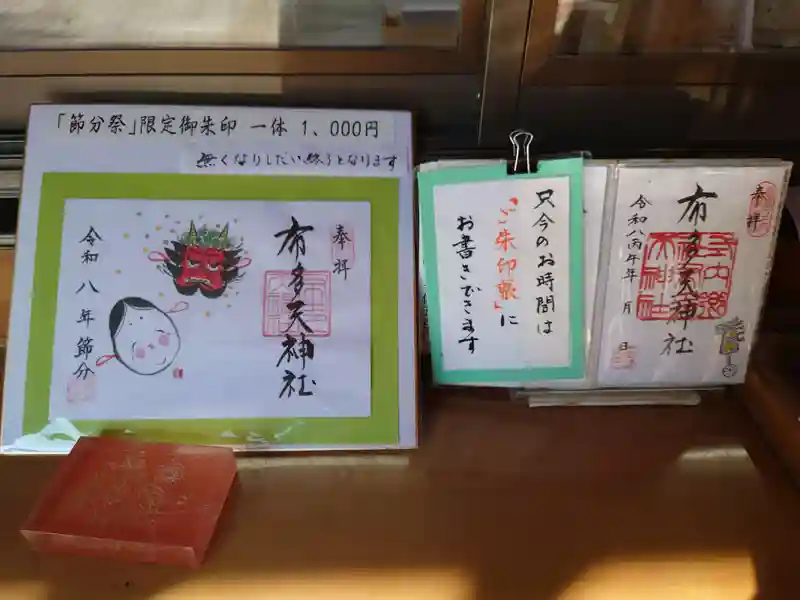 「節分祭」限定御朱印 一体 1、000円
無くなりしだい終了となります
奉拝
布多天神社
令和八年節分
只今のお時間は
「ご朱印帳」に
お書きできます
奉拝
布多天神社
令和八丙午年 月 日